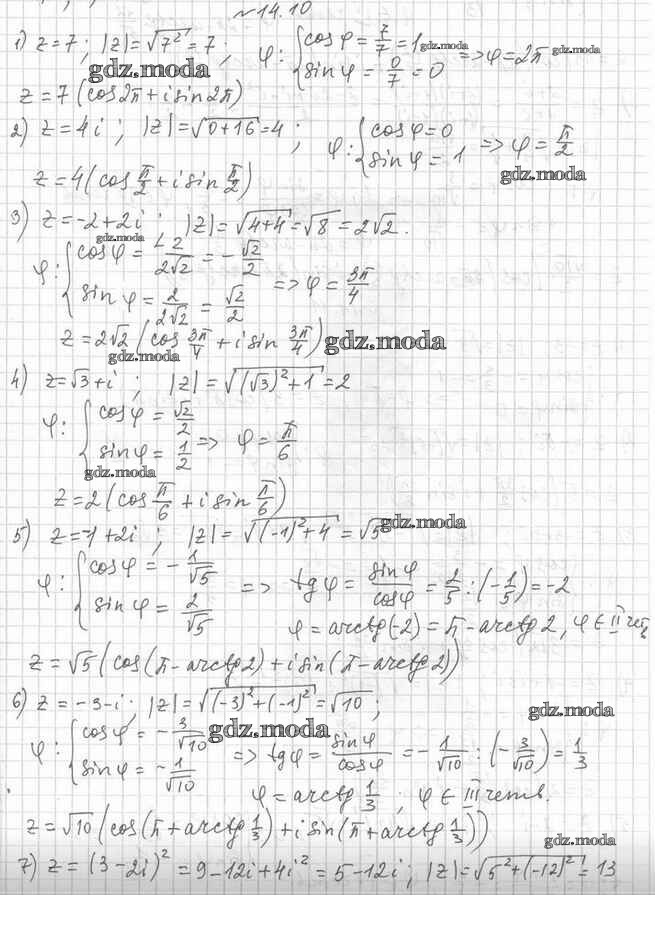 №14.10
1) z=7; |z|=√7² = 7; φ: {cosφ = 7/7 = 1 => φ=2π
sinφ = 0/7 = 0
gdz.moda gdz.moda gdz.moda
z=7(cos2π+isin2π)
2) z=4i; |z|=√0+16=4; φ: {cosφ=0 => φ=π/2
sinφ=1
gdz.moda
z=4(cos π/2 + i sin π/2)
3) z=-2+2i; |z|=√4+4=√8=2√2.
gdz.moda
φ: {cosφ = -2/2√2 = -√2/2 => φ=3π/4
sinφ = 2/2√2 = √2/2
z=2√2(cos 3π/4 + i sin 3π/4) gdz.moda
gdz.moda
4) z=√3+i; |z|=√(√3)²+1=2
φ: {cosφ = √2/2 => φ=π/6
sinφ = 1/2
gdz.moda
z=2(cos π/6 + i sin π/6)
5) z=-1+2i; |z|=√(-1)²+4=√5 gdz.moda
φ: {cosφ = -1/√5 => tgφ = sinφ/cosφ = 2/5:(-1/5)=-2
sinφ = 2/√5
φ=arctg(-2)=π-arctg2, φ∈II четв
z=√5(cos(π-arctg2)+isin(π-arctg2))
6) z=-3-i; |z|=√(-3)²+(-1)²=√10; gdz.moda
φ: {cosφ = -3/√10 gdz.moda => tgφ = sinφ/cosφ = -1/√10:(-3/√10)=1/3
sinφ = -1/√10
φ=arctg 1/3; φ∈III четв.
z=√10(cos(π+arctg 1/3)+isin(π+arctg 1/3))
gdz.moda
7) z=(3-2i)²=9-12i+4i²=5-12i; |z|=√5²+(-12)²=13